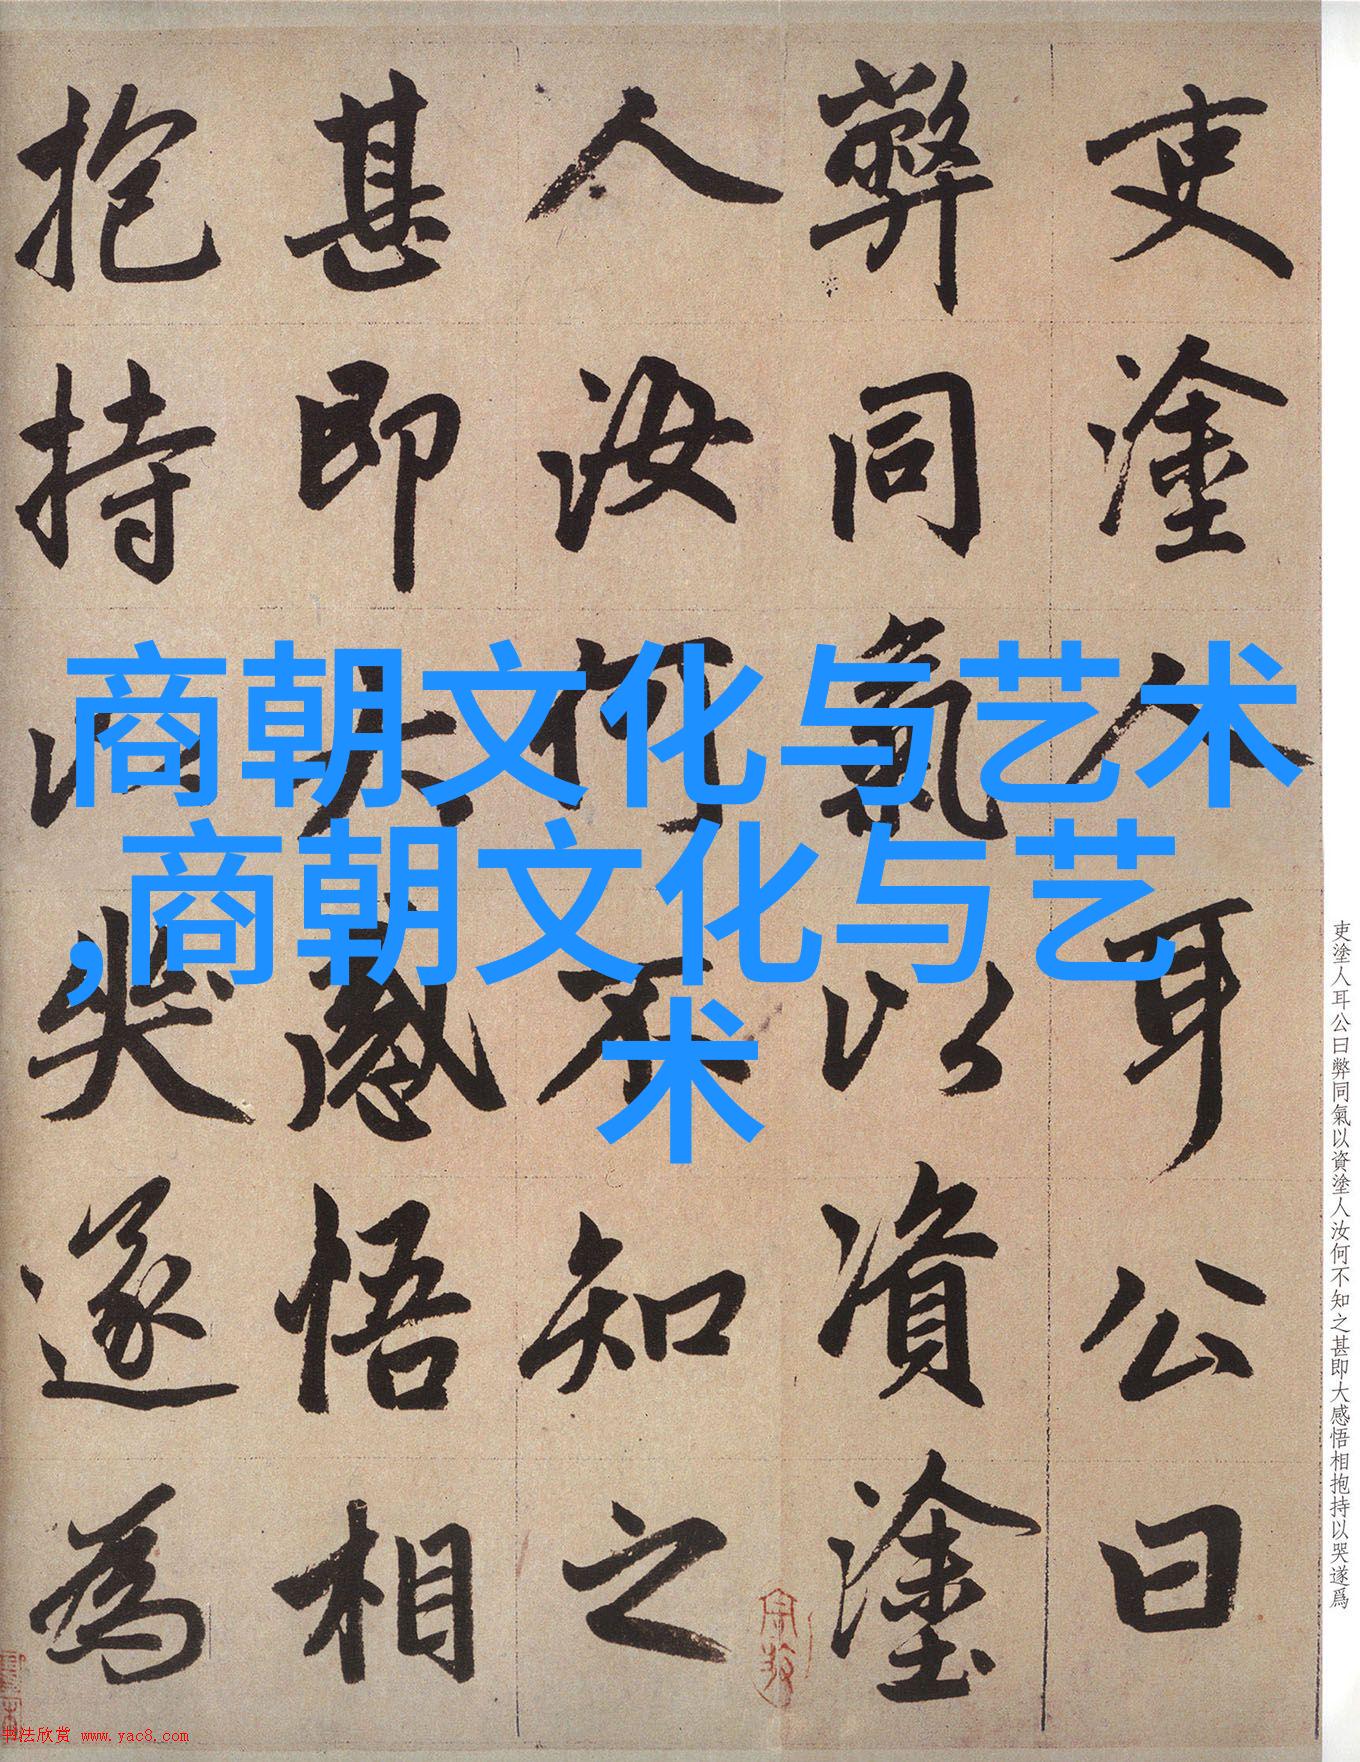 商朝文化与艺术
,商朝文化与艺
术
吏塗人耳公曰
弊同氣以資塗
人汝何不知之
甚即大感悟相
抱持以哭遂為
吏塗人耳公曰弊同氣以資塗人汝何不知之甚即大感悟相抱持以哭遂爲
书法欣赏 www.yac8.com